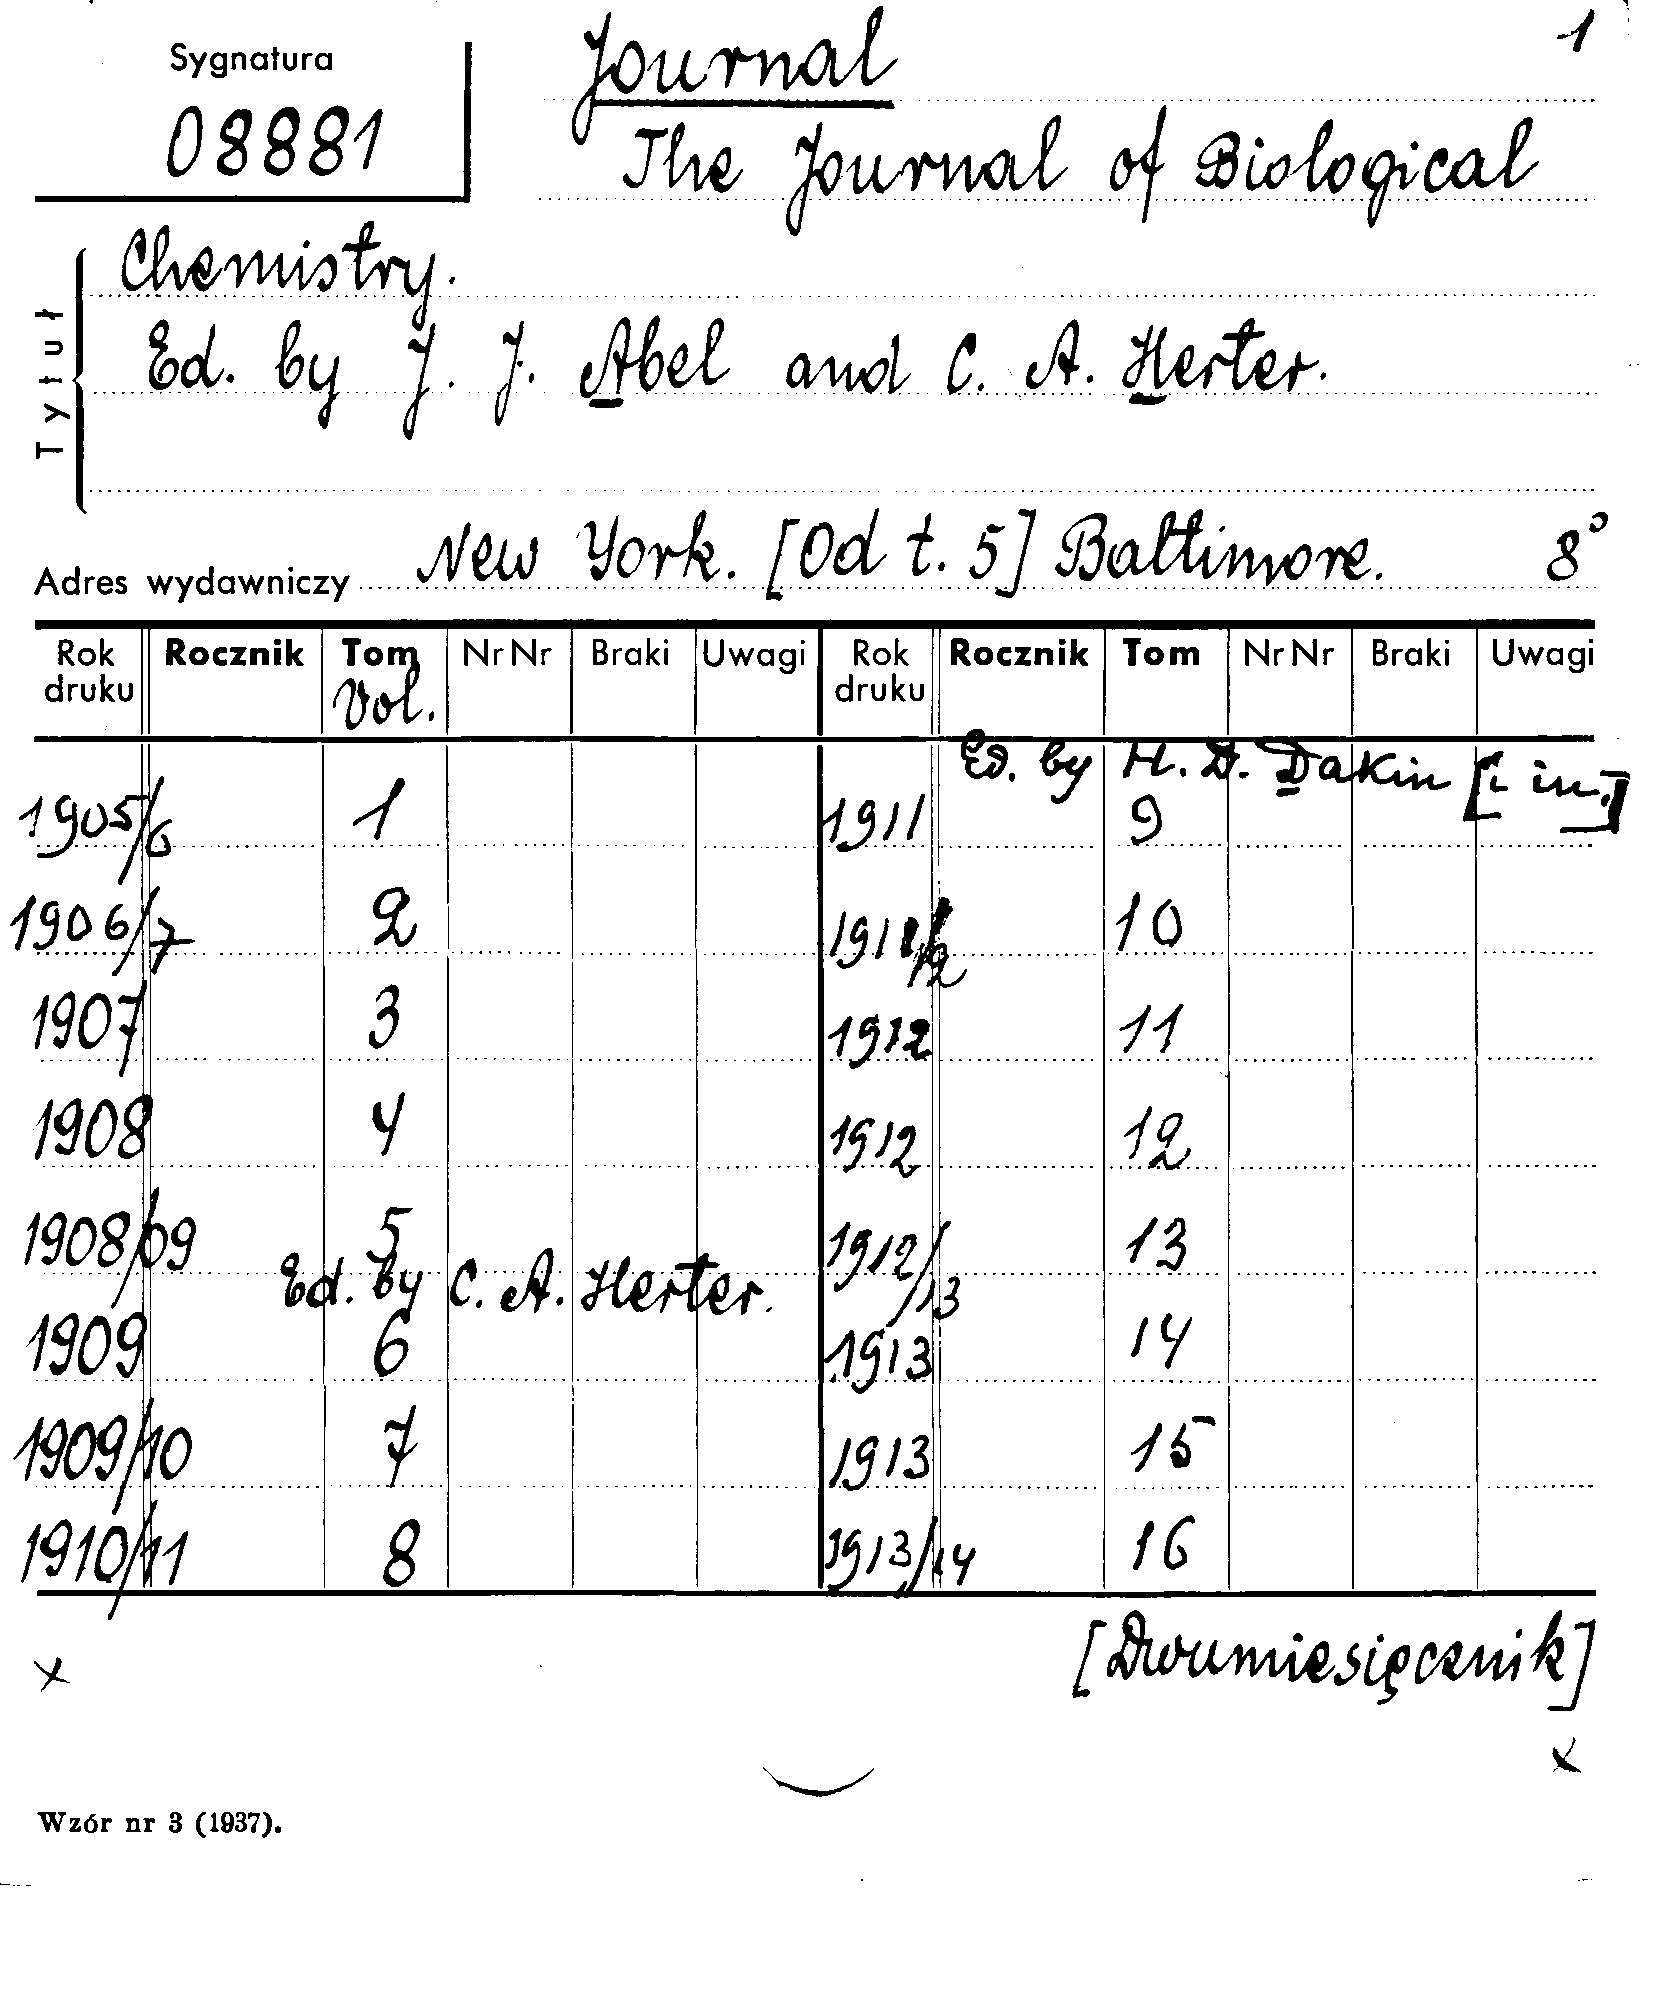 1
Sygnatura
08881
Journal
The Journal of Biological
Chemistry.
Ed. by J. J. Abel and C. A. Herter.
Tytuł
Adres wydawniczy New York. [Od t. 5] Baltimore. 8°
Rok druku Rocznik Tom Nr Nr Braki Uwagi Rok druku Rocznik Tom Nr Nr Braki Uwagi
Vol.
Ed. by H. D. Dakin [i in.]
1905/6 1 1911 9
1906/7 2 1911/12 10
1907 3 1912 11
1908 4 1912 12
1908/09 5 1912/13 13
Ed. by C. A. Herter.
1909 6 1913 14
1909/10 7 1913 15
1910/11 8 1913/14 16
[Dwumiesięcznik]
x
x
Wzór nr 3 (1937).